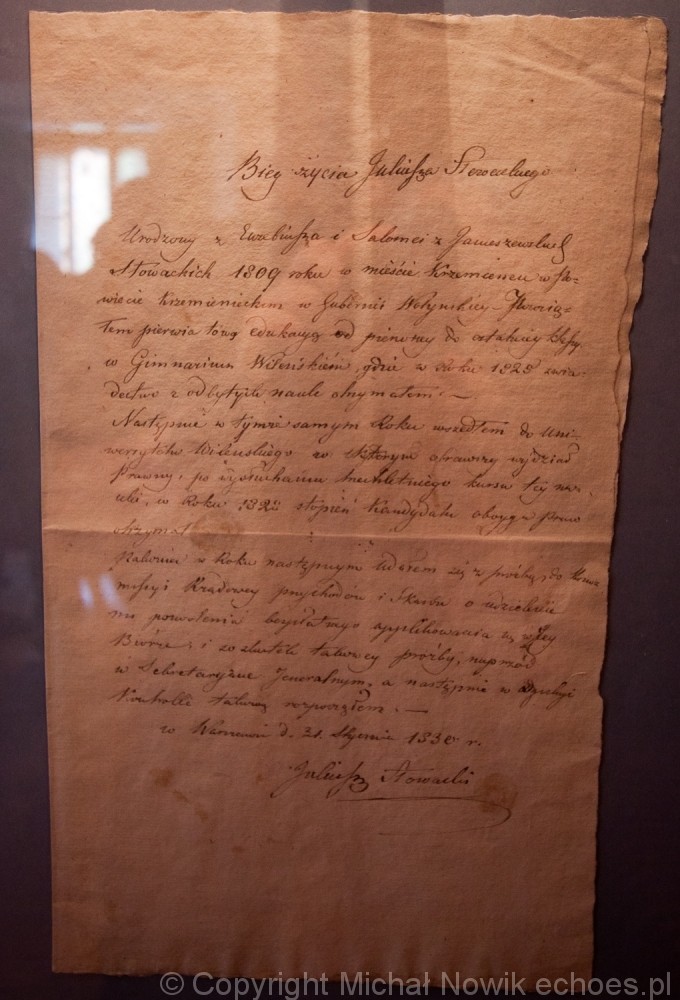 Bieg życia Juliusza Słowackiego
Urodzony z Euzebiusza i Salomei z Januszewskich
Słowackich 1809 roku w mieście Krzemieńcu w Po-
wiecie Krzemienieckim w Gubernii Wołyńskiey
pierwiastową edukacyą od pierwszej do ostatniey klassy
w Gimnazium Wileńskiém, gdzie w roku 1825 świa-
dectwo z odbytych nauk otrzymałem. —
Następnie w tymże samym Roku wszedłem do Uni-
wersytetu Wileńskiego w którym obrawszy wydział
Prawny, po wysłuchaniu trzechletniego kursu tey na-
uki, w Roku 1828 stopień Kandydata oboyga Praw
otrzymał
w Roku następnym udałem się z prośbą do Kom-
missyi Rządowey Przychodów i Skarbu o udzielenie
mi pozwolenia bezpłatnego applikowania się w jey
Biórze; i ze skutek takowey prośby, naprzód
w Sekretaryacie Jeneralnym, a następnie w
Kontrolli rozpocząłem. —
w Warszawie d. 21. Stycznia 1830 r.
Juliusz Słowacki
© Copyright Michał Nowik echoes.pl